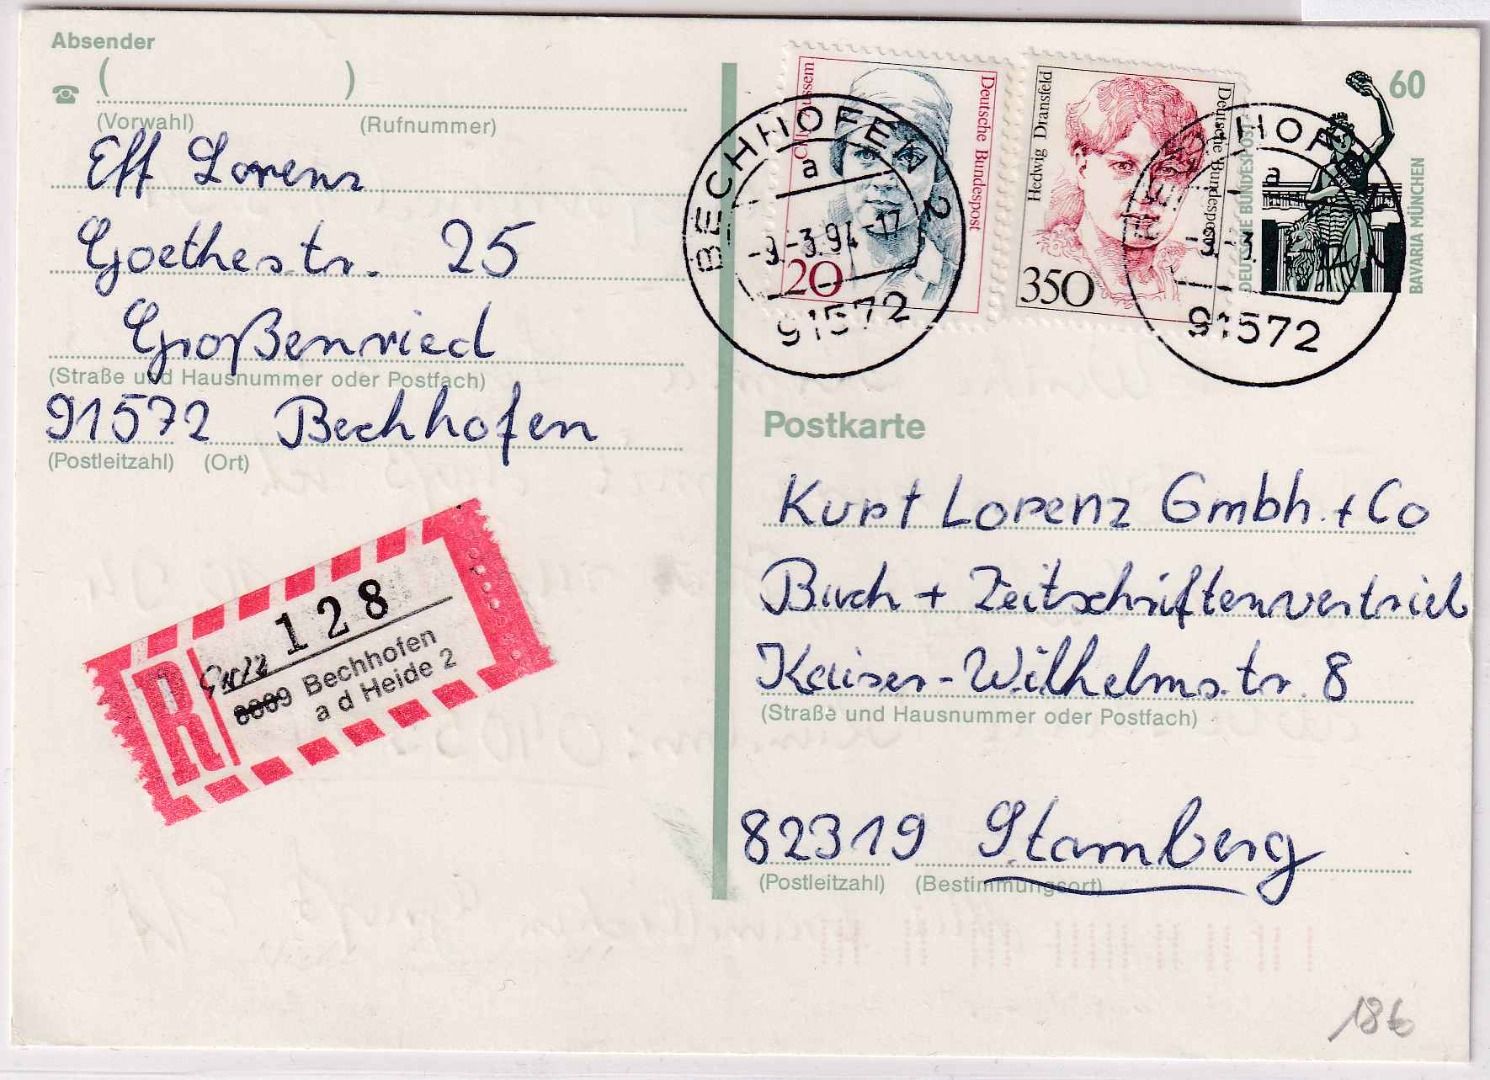 Absender
☎ ( )
(Vorwahl) (Rufnummer)
Eff Lorenz
Goethestr. 25
Großenried
(Straße und Hausnummer oder Postfach)
91572 Bechhofen
(Postleitzahl) (Ort)
R
128
8809 Bechhofen
a d Heide 2
Deutsche Bundespost
20
Hedwig Dransfeld
Deutsche Bundespost
350
60
DEUTSCHE BUNDESPOST
BAVARIA MÜNCHEN
BECHHOFEN 2
a
-9.-3.94-17
91572
a
91572
Postkarte
Kurt Lorenz Gmbh. + Co
Buch + Zeitschriftenvertrieb
Kaiser-Wilhelmstr. 8
(Straße und Hausnummer oder Postfach)
82319 Starnberg
(Postleitzahl) (Bestimmungsort)
186